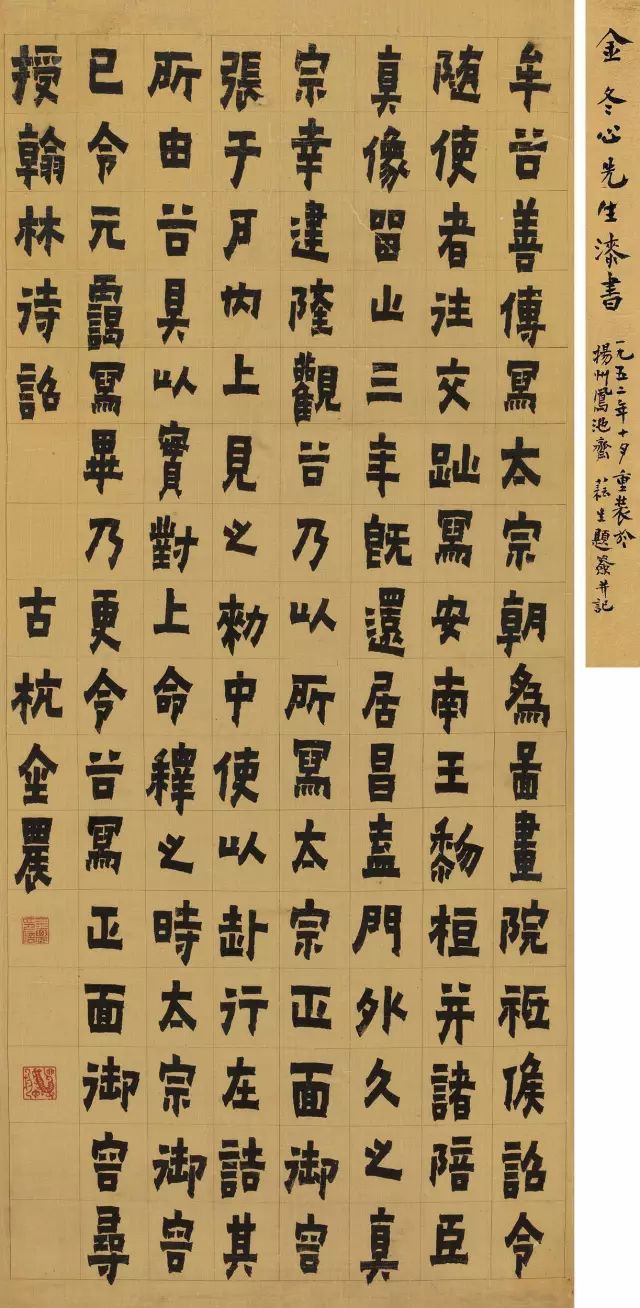 金冬心先生漆書
一九五二年十月重裝於
揚州鳳池齋 耘生題簽并記
牟谷善傳寫太宗朝為圖畫院祗候詔令
随使者往交趾寫安南王黎桓并諸陪臣
真像留止三年旣還居昌盍門外久之真
宗幸建隆觀谷乃以所寫太宗正面御容
張于戶內上見之勑中使以赴行在詰其
所由谷具以實對上命釋之時太宗御容
已令元靄寫畢乃更令谷寫正面御容尋
授翰林待詔 古杭金農